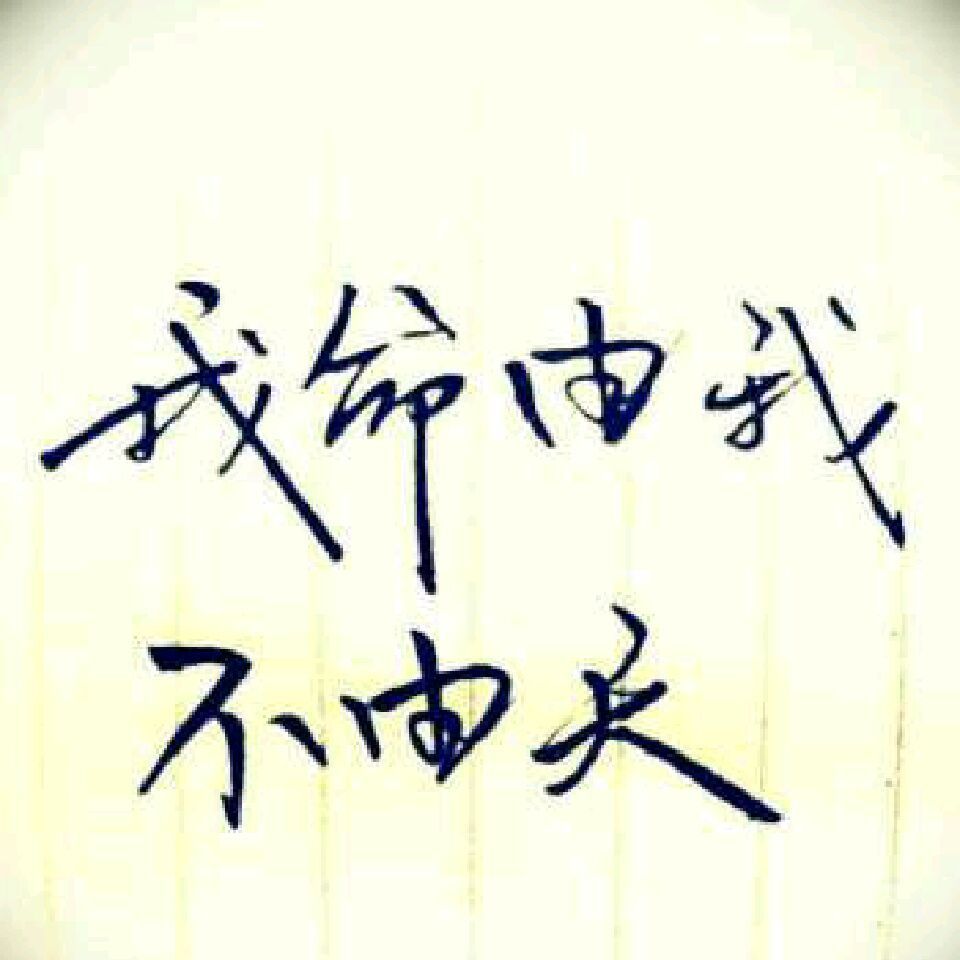 我命由我
不由天